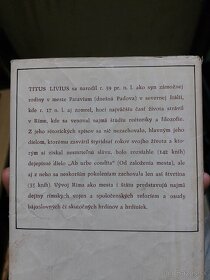 TITUS LIVIUS sa narodil r. 59 pr. n. l. ako syn zámožnej
rodiny v meste Patavium (dnešná Padova) v severnej Itálii,
kde r. 17 n. l. aj zomrel, hoci najväčšiu časť života strávil
v Ríme, kde sa venoval najmä štúdiu rétoriky a filozofie.
Z jeho rétorických spisov sa nič nezachovalo, hlavným jeho
dielom, ktorému zasvätil štyridsať rokov svojho života a kto-
rým si získal nesmrteľnú slávu, bolo rozsiahle (142 kníh)
dejepisné dielo "Ab urbe condita" (Od založenia mesta), ale
aj z neho sa neskorším pokoleniam zachovala len asi štvrtina
(35 kníh). Vývoj Ríma ako mesta i štátu predstavujú najmä
dejiny rímskych vojen a spoločenských reforiem a osudy
bájoslovných či skutočných hrdinov a hrdiniek.